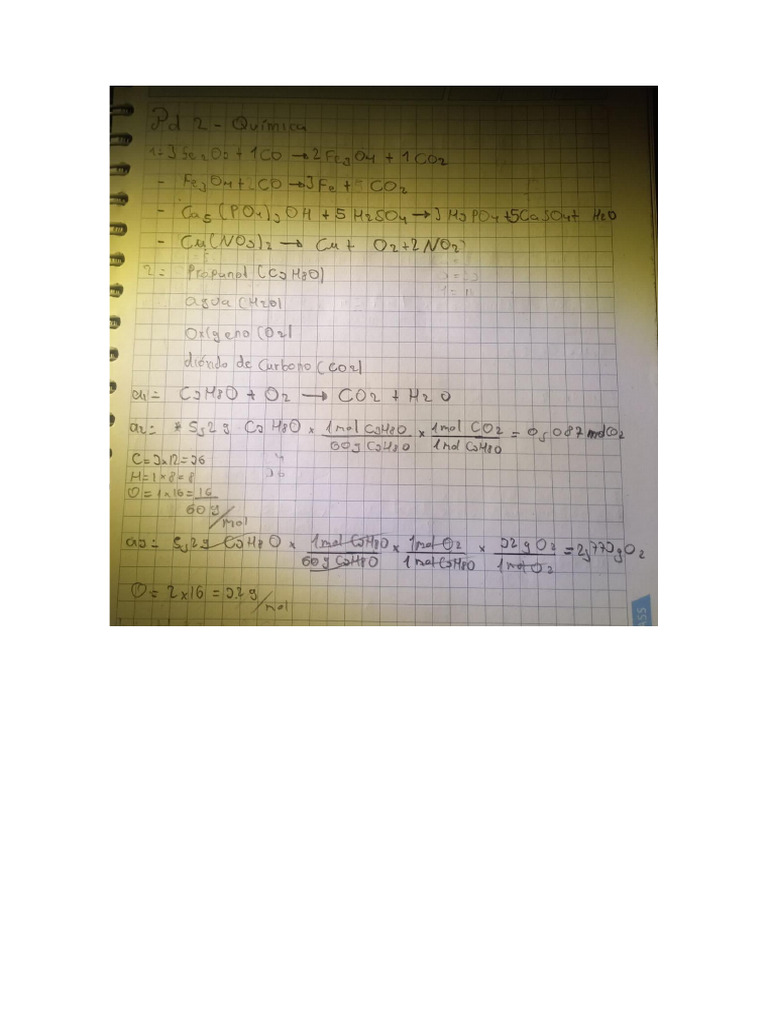 Pd 2 - Química
1= 3 Fe2O3 + 1CO → 2Fe3O4 + 1CO2
- Fe3O4 + CO → 3Fe + CO2
- Ca5(PO4)3OH + 5 H2SO4 → 3 H3PO4 + 5CaSO4 + H2O
- Cu(NO3)2 → Cu + O2 + 2NO2
2= Propanol (C3H8O)
agua (H2O)
Oxígeno (O2)
dióxido de Carbono (CO2)
a1= C3H8O + O2 → CO2 + H2O
a2= * 5,2 g C3H8O × 1mol C3H8O / 60g C3H8O × 1mol CO2 / 1mol C3H8O = 0,087 molCO2
C= 3×12 = 36
H= 1×8 = 8
O= 1×16 = 16
60 g/mol
a3= 5,2 g C3H8O × 1mol C3H8O / 60g C3H8O × 1mol O2 / 1mol C3H8O × 32g O2 / 1mol O2 = 2,773gO2
O= 2×16 = 32 g/mol